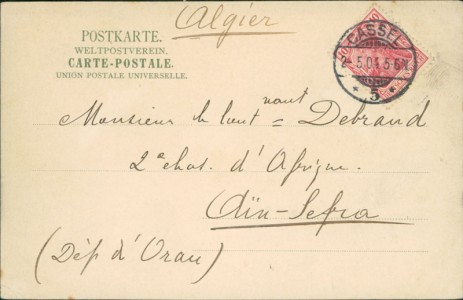 Algier
POSTKARTE.
WELTPOSTVEREIN.
CARTE-POSTALE.
UNION POSTALE UNIVERSELLE.
CASSEL
2.5.04.5-6N.
* 5 *
Monsieur le lieutnant = Debrand
2e chas. d'Afrique.
Aïn-Sefra
(Dép d'Oran)